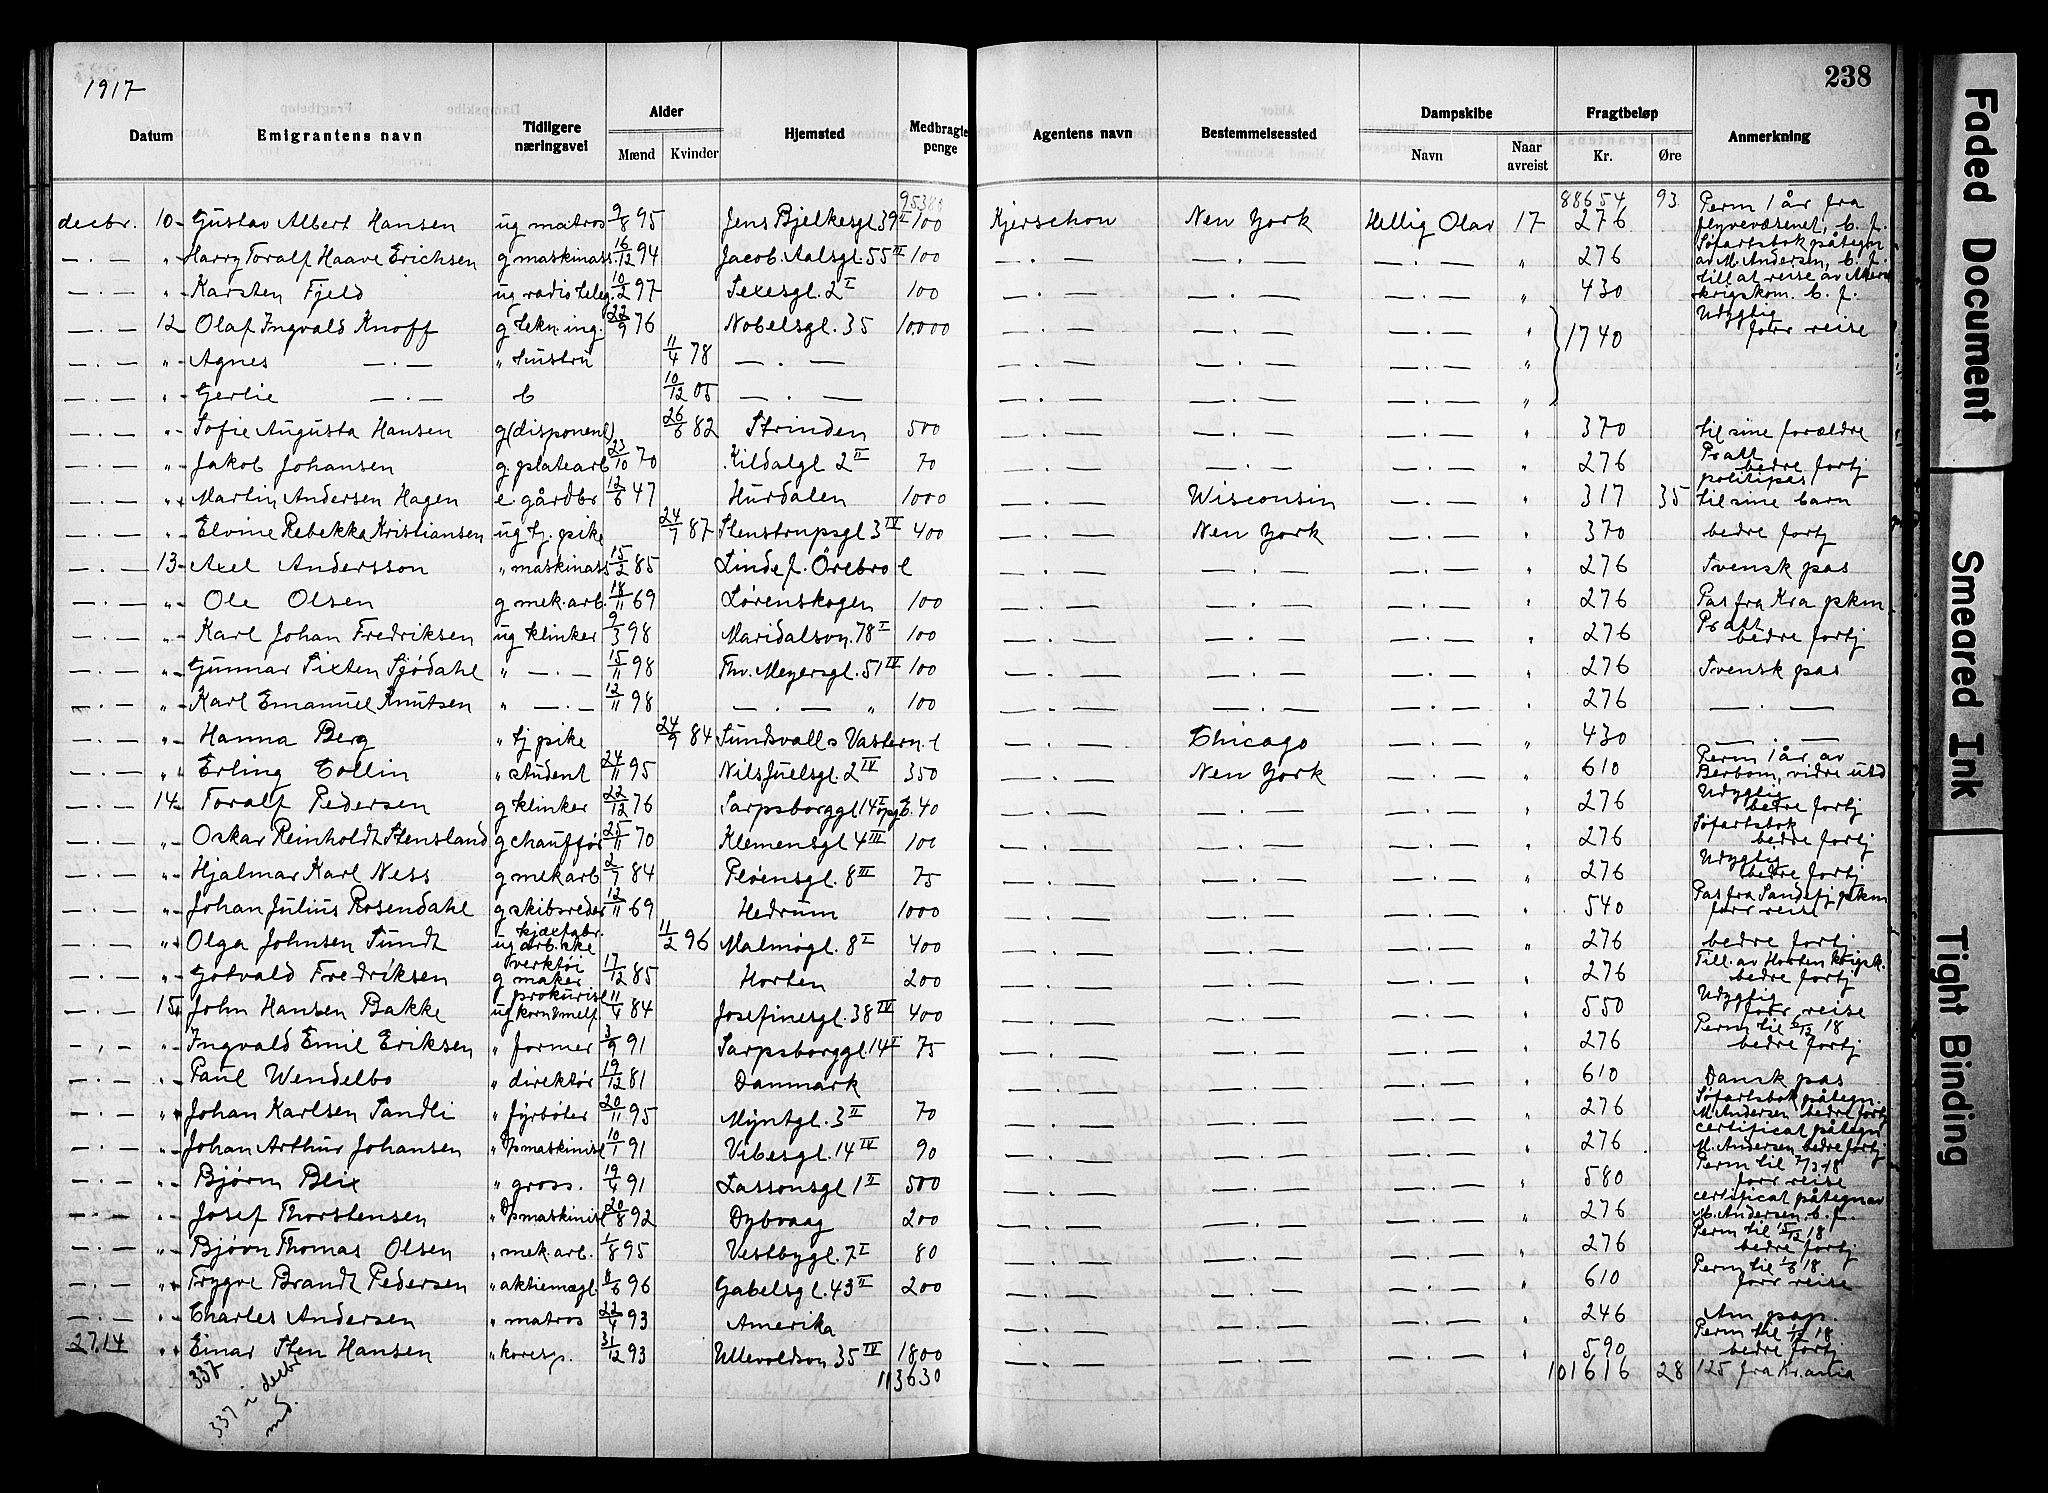 1917
238
Datum Emigrantens navn Tidligere næringsvei Alder Mænd Kvinder Hjemsted Medbragte penge Agentens navn Bestemmelsessted Dampskibe Navn Naar avreist Fragtbeløp Kr. Øre Anmerkning
88654 93
decbr. 10 Gustav Albert Hansen ug matros 9/8 95 Jens Bjelkesgt 39 II 100 Kjerschow New York Hellig Olav 17 276 Perm 1 år fra flyvevæsenet, b. f.
— . — " Harry Toralf Haave Erichsen g maskinass. 16/12 94 Jacob Aalsgt. 55 II 100 — . — — . — — . — " 276 Søfartsbok påtegn av M. Andersen, b. f.
— . — " Karsten Fjeld ug radioteleg. 10/2 97 Sexesgt. 2 I 100 — . — — . — — . — " 430 till at reise av Akers krigskom. b. f.
— . — 12 Olaf Ingvald Knoff g tekn. ing. 22/9 76 Nobelsgt. 35 10000 — . — — . — — . — " 1740 Udygtig forr reise
— . — " Agnes — . — " hustru 11/4 78 — . — — . — — . — — . — "
— . — " Gerlie — . — b 10/12 05 — . — — . — — . — — . — "
— . — " Sofie Augusta Hansen g (disponent) 26/6 82 Strinden 500 — . — — . — — . — " 370 til sine forældre
— . — " Jakob Johansen g. platearb 23/10 70 Kildalgt 2 II 70 — . — — . — — . — " 276 Pratt bedre fortj
— . — " Martin Andersen Hagen e. gårdbr 12/6 47 Hurdalen 1000 — . — Wisconsin — . — " 317 35 politipas til sine barn
— . — " Elvine Rebekka Kristiansen ug tj. pike 24/7 87 Stenstrupsgt 3 IV 400 — . — New York — . — " 370 bedre fortj
— . — 13 Axel Andersson " maskinass 15/2 85 Linde f. Örebro l — . — — . — — . — " 276 Svensk pas
— . — " Ole Olsen g mek. arb. 18/11 69 Lørenskogen 100 — . — — . — — . — " 276 Pas fra Kra pkm
— . — " Karl Johan Fredriksen ug klinker 9/3 98 Maridalsvn. 78 I 100 — . — — . — — . — " 276 Pratt bedre fortj
— . — " Gunnar Sixten Sjödahl " — . — 15/11 98 Thv. Meyersgt. 51 IV 100 — . — — . — — . — " 276 Svensk pas
— . — " Karl Emanuel Knutsen " — . — 12/11 98 — . — " 100 — . — — . — — . — " 276 — . —
— . — " Hanna Berg " tj pike 24/9 84 Sundsvall Vastern. l — . — Chicago — . — " 430 — . —
— . — " Erling Collin " student 24/11 95 Nils Juelsgt. 2 IV 350 — . — New York — . — " 610 Perm 1 år av Berbom, vidre utd
— . — 14 Toralf Pedersen g klinker 22/12 76 Sarpsborggt 14 I opg b. 40 — . — — . — — . — " 276 Udygtig bedre fortj
— . — " Oskar Reinholdt Stensland g chauffør 25/11 70 Klemensgt 4 III 100 — . — — . — — . — " 276 Søfartsbok bedre fortj
— . — " Hjalmar Karl Ness g mek arb 2/7 84 Pløensgt. 8 III 75 — . — — . — — . — " 276 Udygtig bedre fortj
— . — " Johan Julius Rosendahl g skibsreder 12/11 69 Hedrum 1000 — . — — . — — . — " 540 Pas fra Sandefj pkm forr reise
— . — " Olga Johnsen Sundt ug kjæxfabr. arb. ske 11/2 96 Malmøgt. 8 I 400 — . — — . — — . — " 276 bedre fortj
— . — " Gotvald Fredriksen g verktøi maker 17/12 85 Horten 200 — . — — . — — . — " 276 Till. av Horten krigsk. bedre fortj
— . — 15 John Hansen Bakke ug prokurist korn & melf 11/4 84 Josefinesgt. 38 IV 400 — . — — . — — . — " 550 Udygtig forr reise
— . — " Ingvald Emil Eriksen " former 3/9 91 Sarpsborggt. 14 I 75 — . — — . — — . — " 276 Perm til 6/12 18 bedre fortj
— . — " Paul Wendelbo " direktør 19/12 81 Danmark — . — — . — — . — " 610 Dansk pas
— . — " Johan Karlsen Sandli " fyrbøter 20/11 95 Myntgt. 3 II 70 — . — — . — — . — " 276 Søfartsbok påtegn. M. Andersen bedre fortj
— . — " Johan Arthur Johansen " Dpmaskinist 10/1 91 Vibesgt. 14 IV 90 — . — — . — — . — " 276 certificat påtegn M. Andersen bedre fortj
— . — " Bjørn Blix " gross. 19/4 91 Lassonsgt 1 II 500 — . — — . — — . — " 580 Perm til 7/3 18 forr reise
— . — " Josef Thorstensen " Dpmaskinist 20/8 92 Dybvaag 200 — . — — . — — . — " 276 certificat påtegn av M. Andersen. b. f.
— . — " Bjørn Thomas Olsen " mek. arb. 1/8 95 Vestbygt. 7 I 80 — . — — . — — . — " 276 Perm til 15/12 18 bedre fortj
— . — " Trygve Brandt Pedersen " aktiemægl 8/6 96 Gabelsgt. 43 II 200 — . — — . — — . — " 610 Perm til 1/6 18 forr reise
— . — " Charles Andersen " matros 22/4 93 Amerika — . — — . — — . — " 246 Am pap.
2714 " Einar Sten Hansen " koresp. 31/12 93 Ullevoldsvn 35 IV 1800 — . — — . — — . — " 590 Perm til 1/12 18. bedre fortj
337 113630 101616 28 125 fra Kr.ania
337 i decbr md.
Faded Document
Smeared Ink
Tight Binding